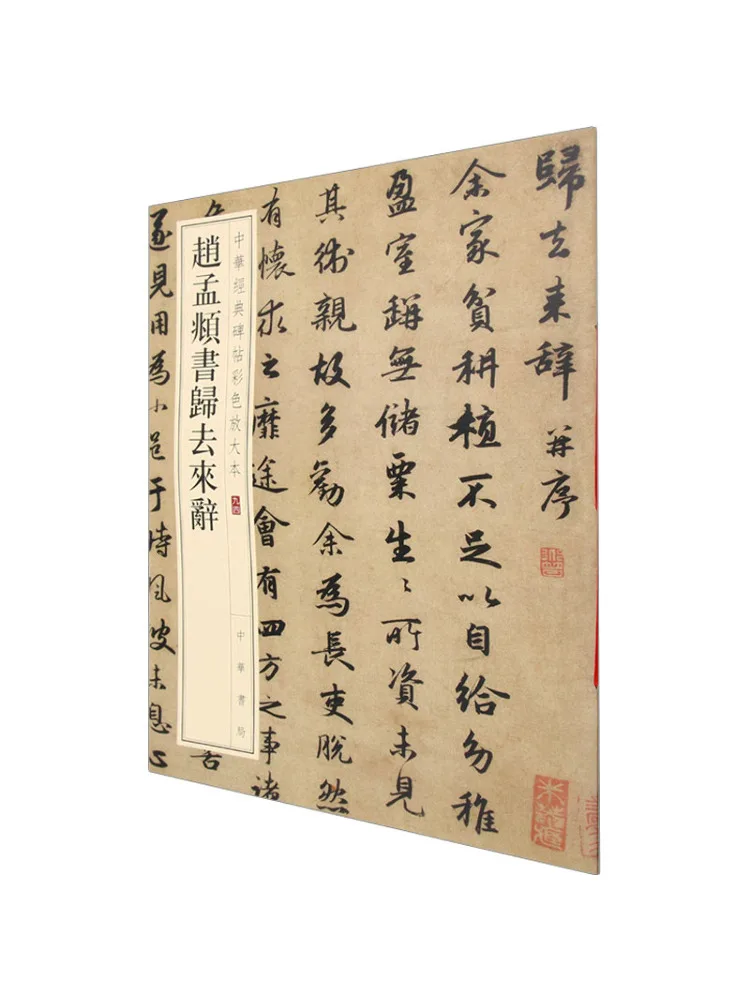 歸去来辞并序
余家貧耕植不足以自給幼稚
盈室缾無儲粟生〻所資未見
其術親故多勸余為長吏脫然
有懷求之靡途會有四方之事諸
遂見用為小邑于時風波未息心
中華經典碑帖彩色放大本 九四
中華書局
趙孟頫書歸去來辭